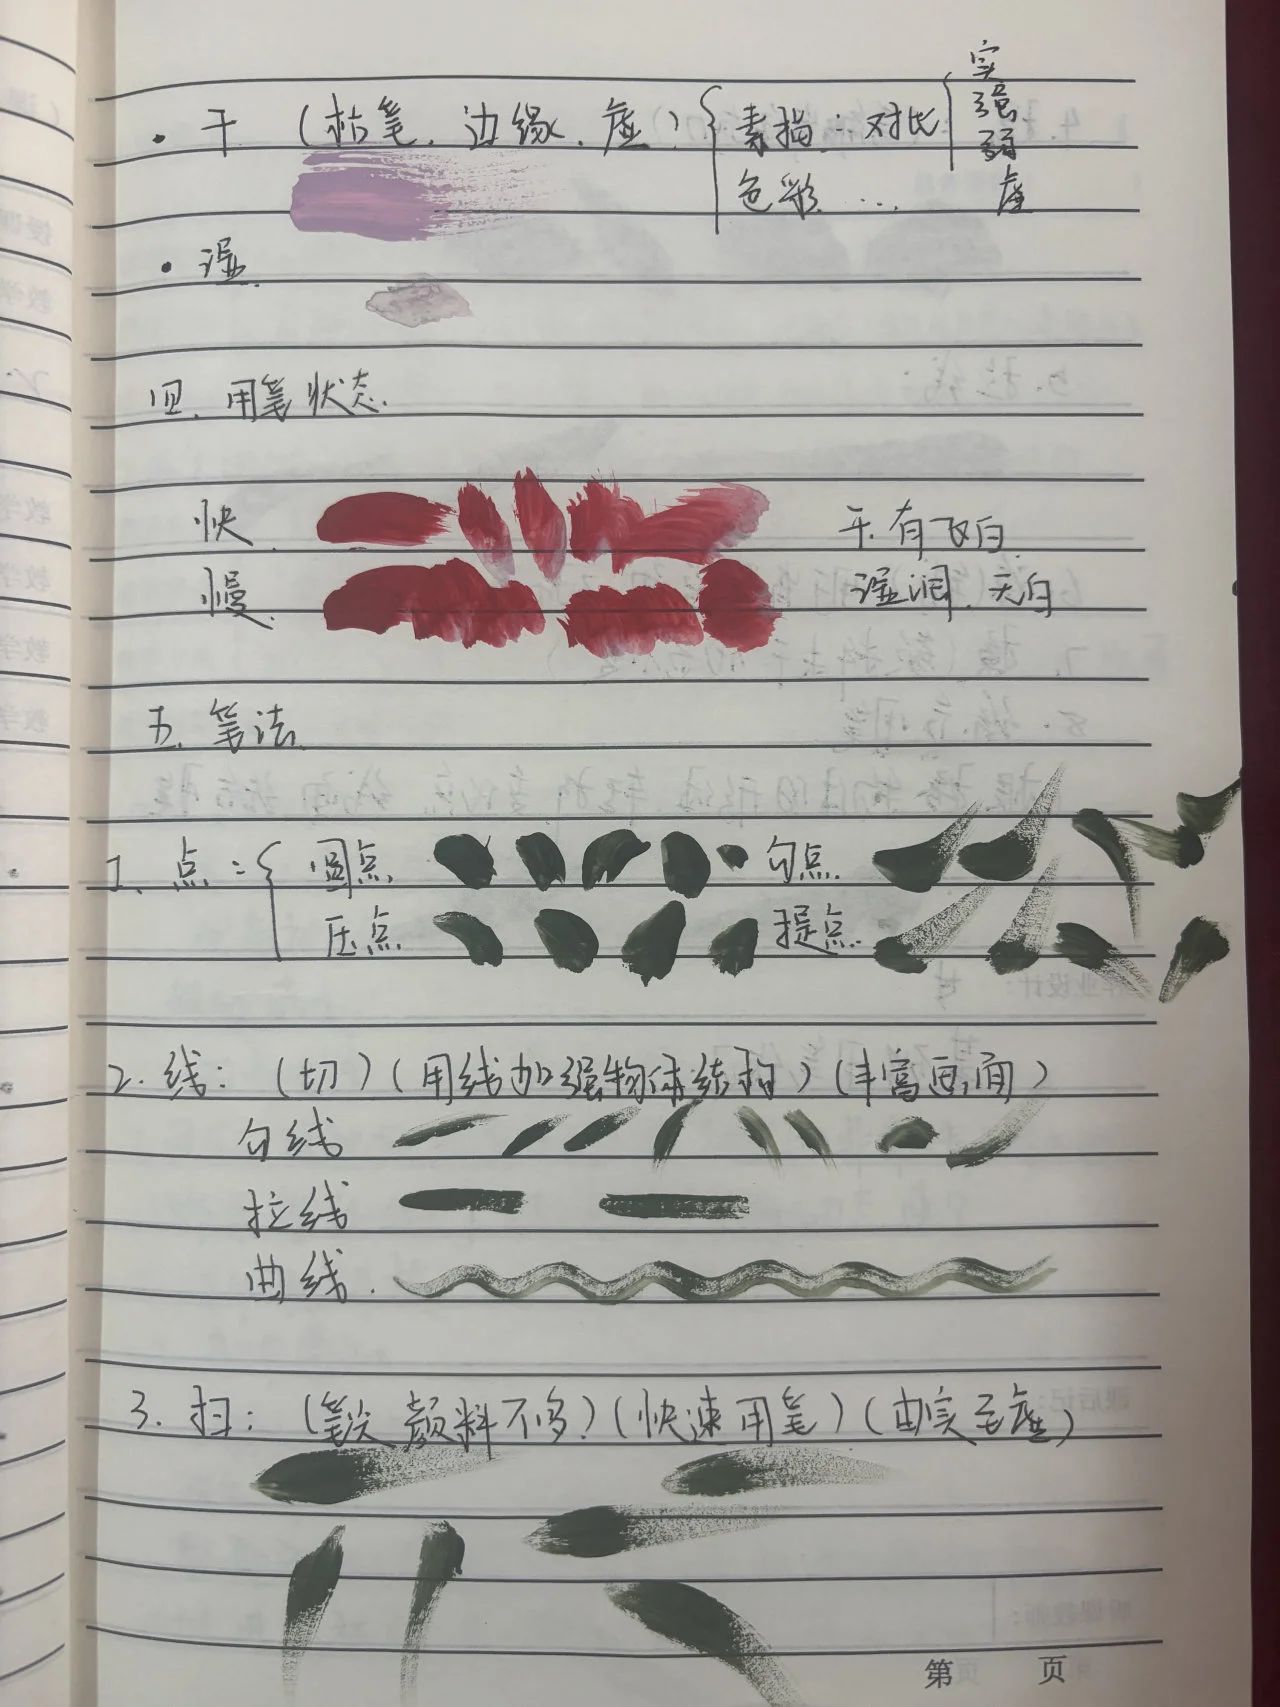 · 干（枯笔.边缘.虚）{素描：对比{实 强 弱 虚
色彩 ...
· 湿
四.用笔状态.
快. 干.有飞白.
慢. 湿润.无白
五.笔法
1. 点：{圆点 句点.
压点 提点.
2. 线：（切）（用线加强物体结构）（丰富画面）
勾线
拉线
曲线.
3. 扫：（笔尖颜料不多）（快速用笔）（由实至虚）
第 页